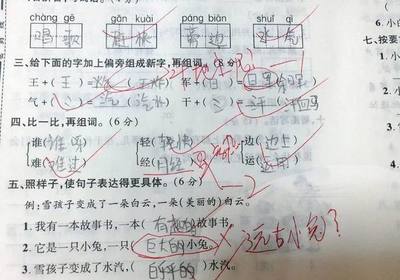 chàng gē gǎn kuài páng biān shuǐ qì
唱歌 赶快 旁边 水气
三、给下面的字加上偏旁组成新字,再组词。(8分)
王+( )= 军+( )=
气+(氵)=汽(汽水) 干+(氵)=汗
四、比一比,再组词。(6分)
谁(谁呀) 轻(轻快) 边(边上)
难(难过) 经(月经) 运(运用)
-2
五、照样子,使句子表达得更具体。(6分)
例:雪孩子变成了一朵白云,一朵(美丽的)白云。
1.我有一本故事书,一本(有趣的)故事书。
2.它是一只小兔,一只(巨大的)小兔。 远古小兔?
3.雪孩子变成了水汽,(白的)水汽。
6.小白
七、按要
1.
2.
3.